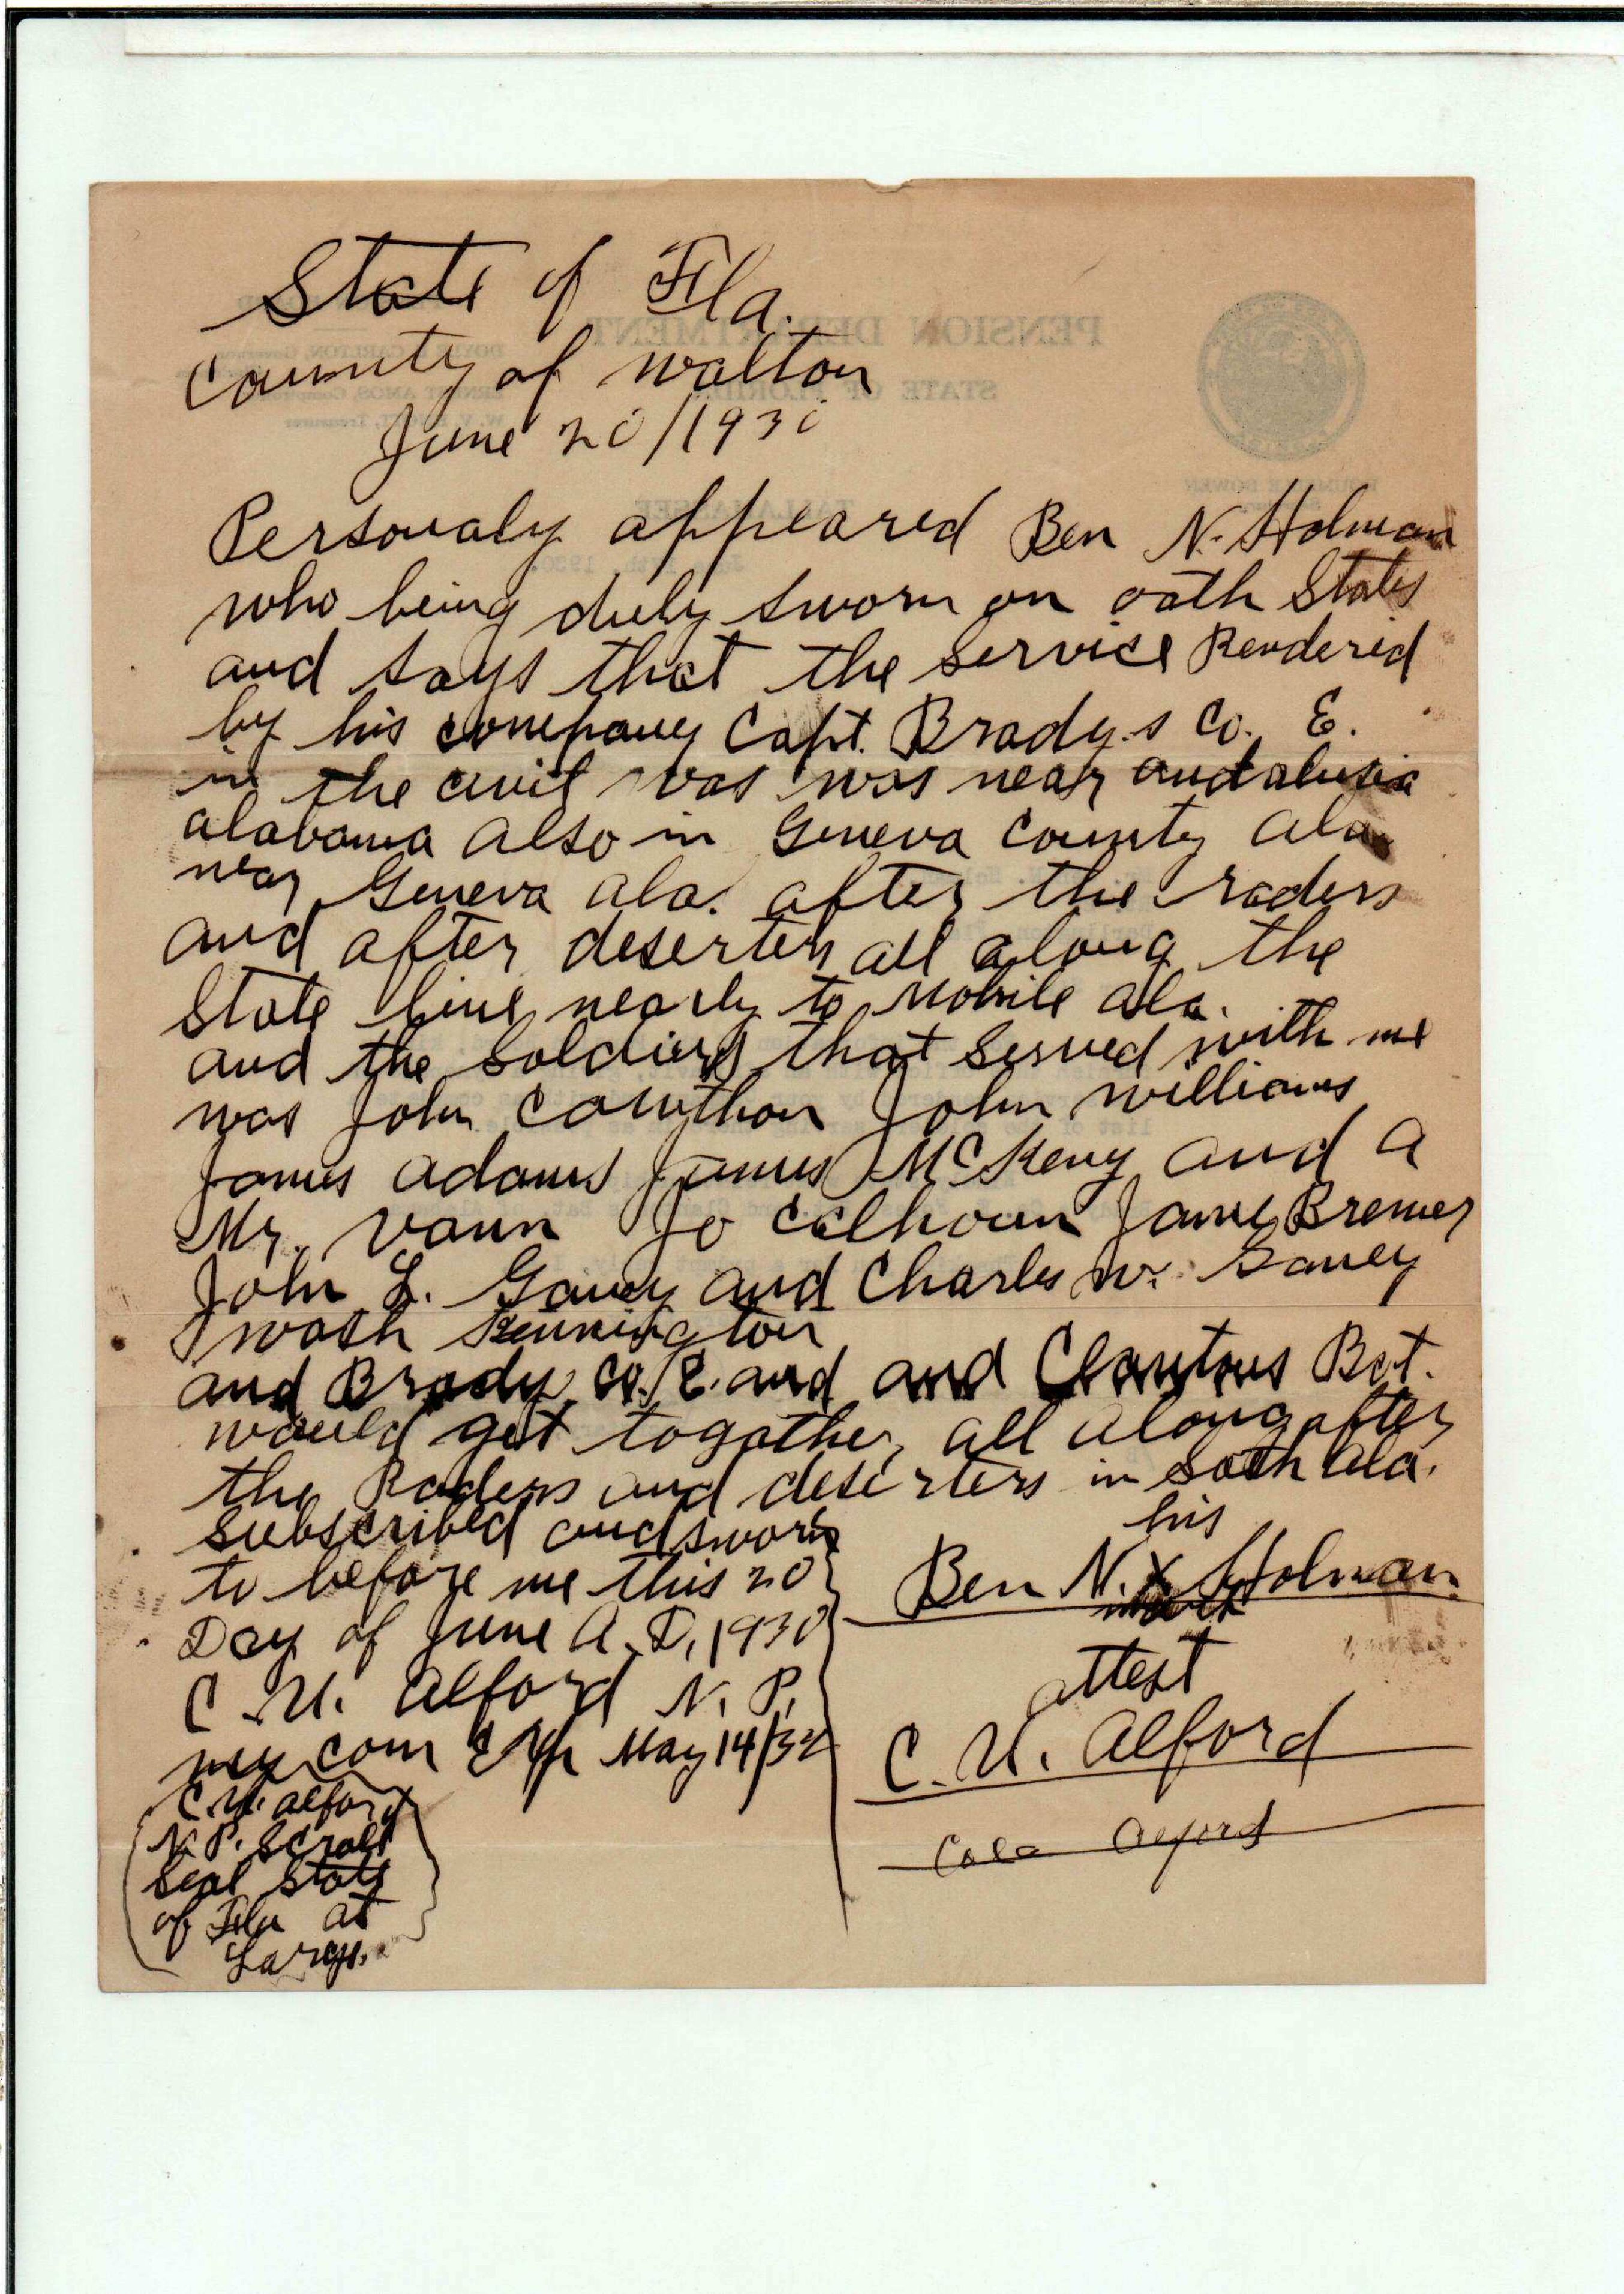 State of Fla.
County of Walton
June 20/1930
Personaly appeared Ben N. Holman
who being duly sworn on oath States
and says that the service Rendered
by his company Capt. Brady.s Co. E.
in the civil was was near andalusia
alabama also in Geneva County Ala
near Geneva ala. after the raders
and after deserters all along the
State line nearly to Mobile ala.
and the soldiers that served with me
was John Cawthon John Williams
James adams James McKeny and a
Mr. Vann Jo Calhoun James Bremer
John L. Gavey and Charles W. Ganey
wash Kennington
and Brady Co. E. and and Clantons Bat.
would get togather all along after
the Raders and deserters in Soth ala.
subscribed and sworn
to before me this 20
Day of June A.D, 1930
C. U. Alford N. P.
my com Exp May 14/32
C.U. alford
N. P. Scroll
Seal State
of Fla at
Large.
his
Ben N. X Holman.
mark
attest
C. U. Alford
Cola Alford
PENSION DEPARTMENT
STATE OF FLORIDA
TALLAHASSEE